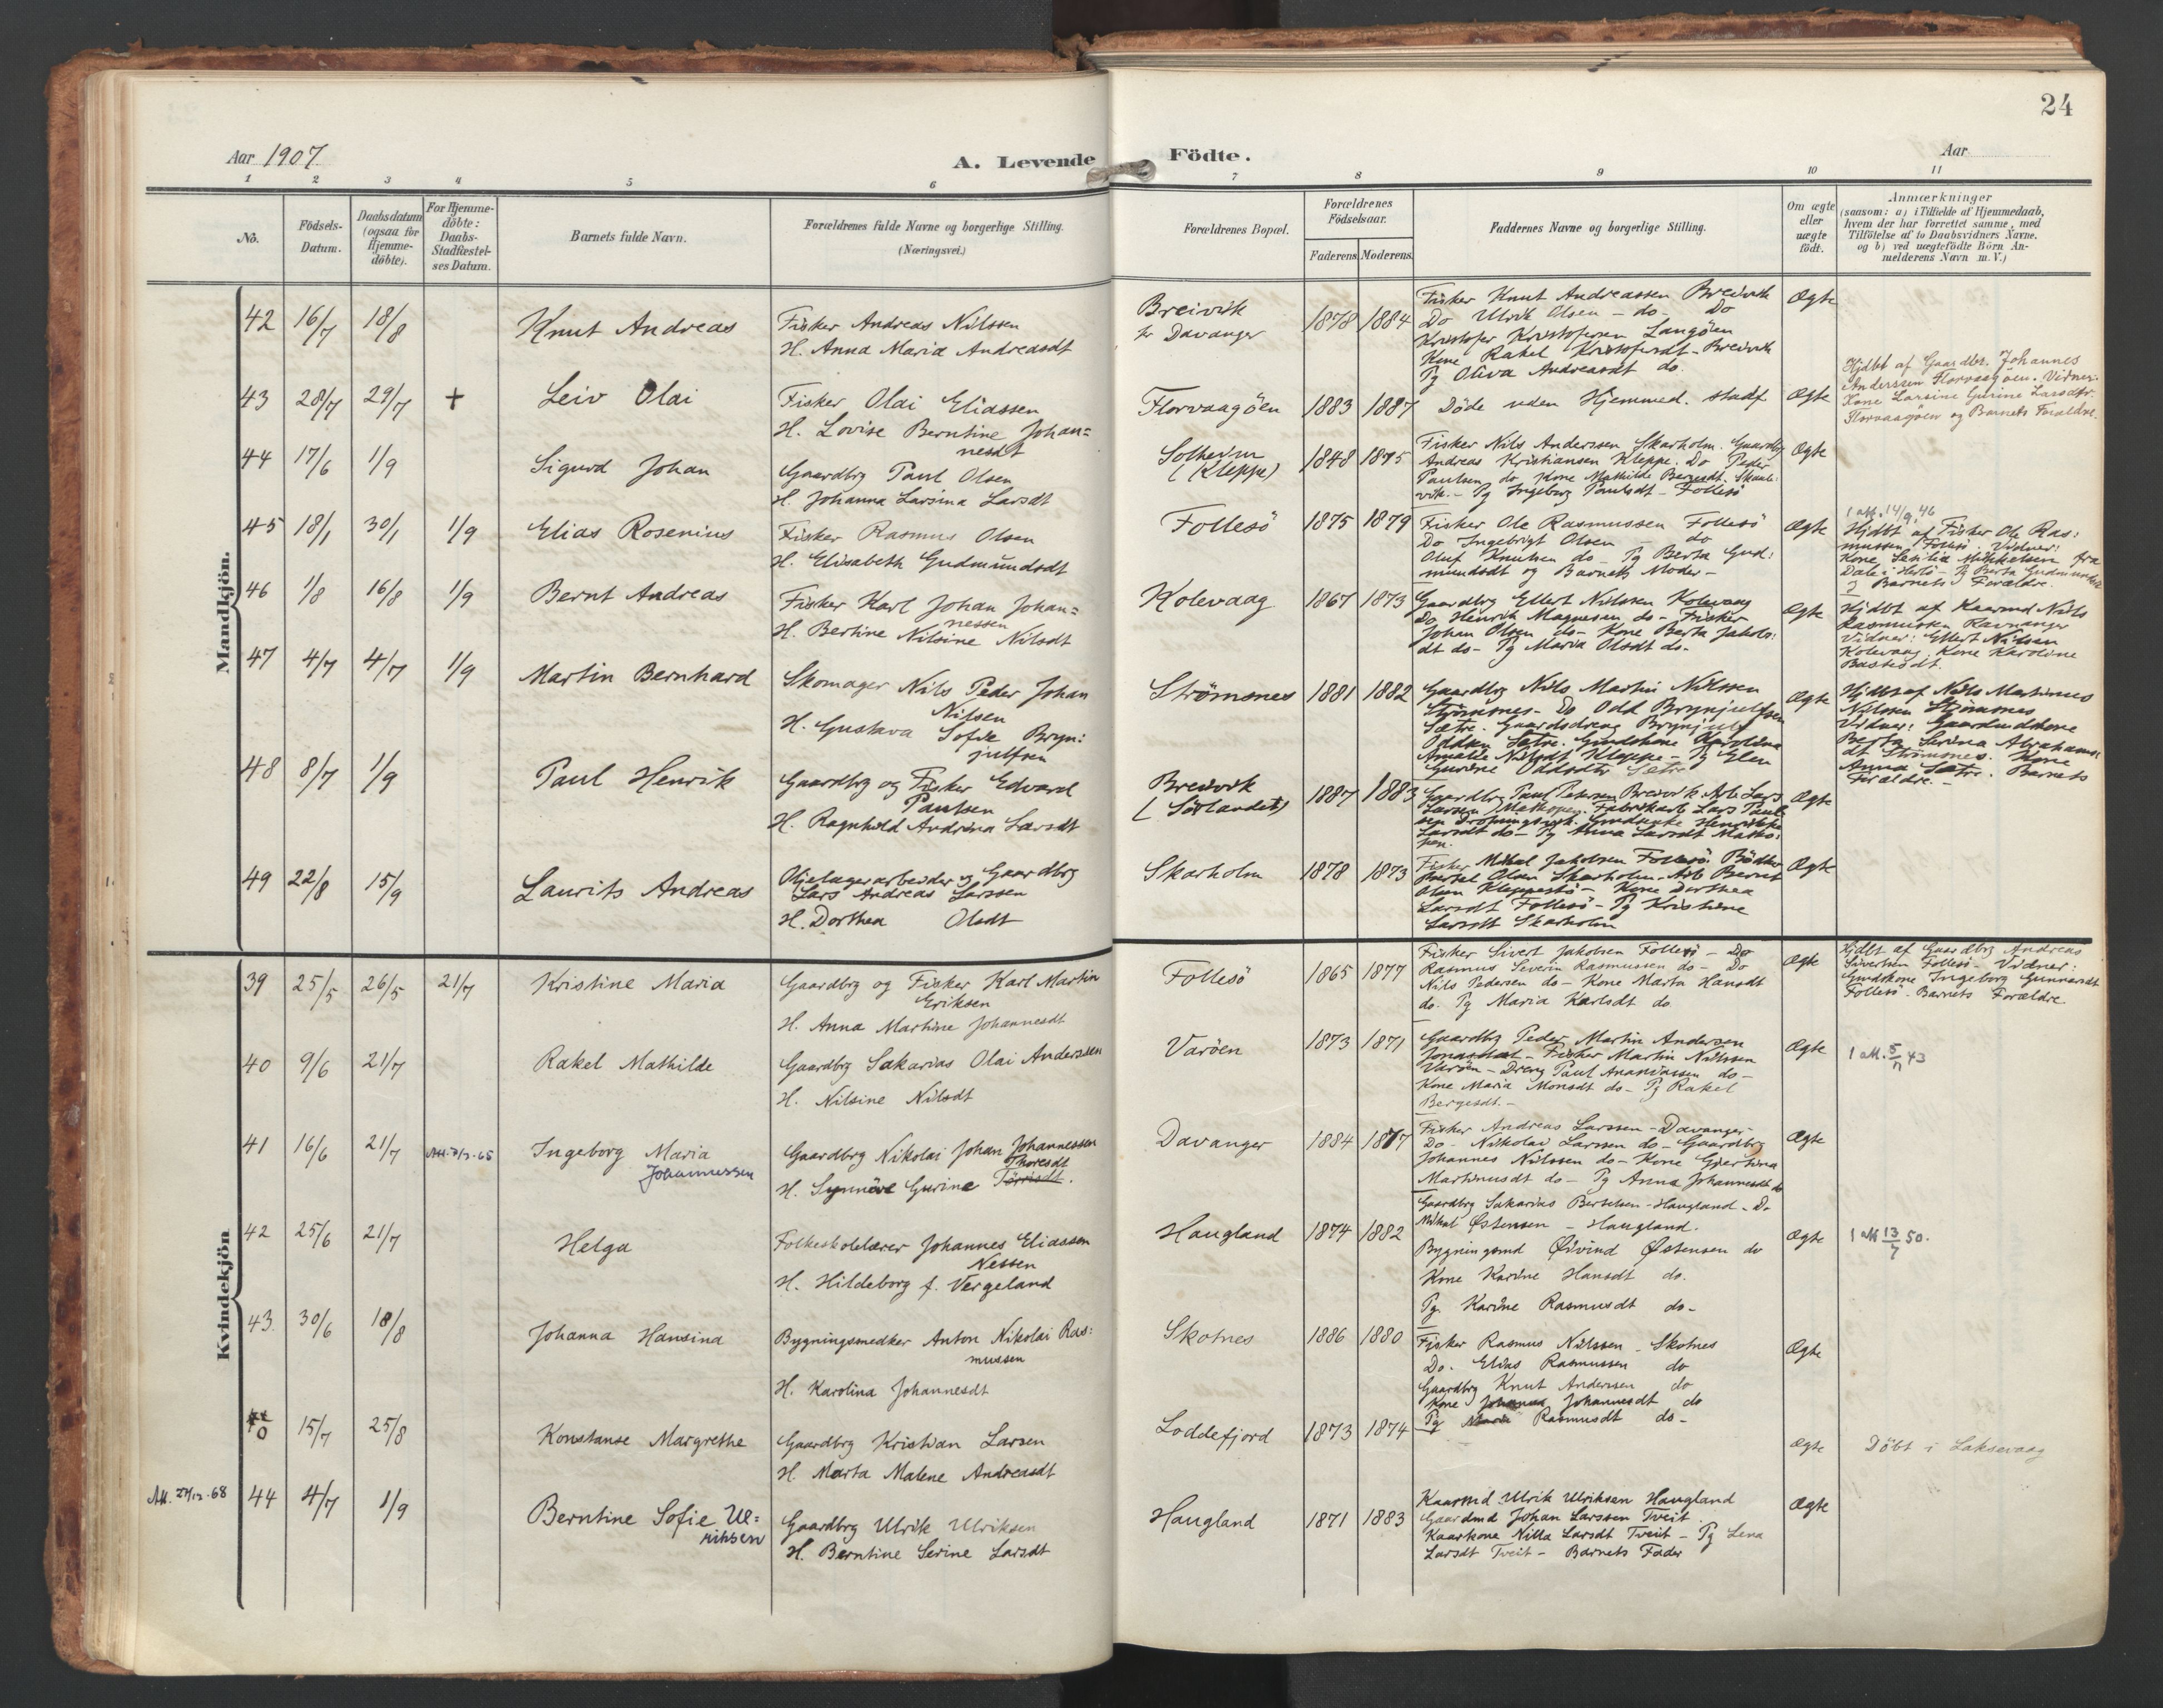 24
Aar 1907
A. Levende Födte.
Aar
1 2 3 4 5 6 7 8 9 10 11
No.
Födsels-Datum.
Daabsdatum (ogsaa for Hjemme-döbte).
For Hjemme-döbte: Daabs-Stadfæstel-ses Datum.
Barnets fulde Navn.
Forældrenes fulde Navne og borgerlige Stilling. (Næringsvei.)
Forældrenes Bopæl.
Forældrenes Födselsaar.
Faderens Moderens
Faddernes Navne og borgerlige Stilling.
Om ægte eller uægte födt.
Anmærkninger
(saasom: a) i Tilfælde af Hjemmedaab,
hvem der har forrettet samme, med
Tilföielse af to Daabsvidners Navne.
og b) ved uægtefödte Börn An-
melderens Navn m. V.)
Mandkjön.
42 16/7 18/8 Knut Andreas
Fisker Andreas Nilssen
H. Anna Maria Andreasdt
Breivik
Davanger
1878 1884
Fisker Knut Andreassen Breivik
Do Ulrik Olsen - do. Do
Kristofer Kristofersen Langöen
Kone Rakel Kristofersdt - Breivik
Pg Oliva Andreasdt do.
Ægte
43 28/7 29/7 + Leiv Olai
Fisker Olai Eliassen
H. Lovise Berntine Johan=
nesdt
Florvaagöen 1883 1887
Döde uden Hjemmed. stadf
Ægte
Hjdbt af Gaardbr. Johannes
Anderssen Florvaagöen. Vidner:
Kone Larsine Gurine Larsdtr.
Florvaagöen og Barnets Forældre.
44 17/6 1/9 Sigurd Johan
Gaardbrg Paul Olsen
H. Johanna Larsina Larsdt
Solheim
(Kleppe)
1848 1875
Fisker Nils Anderssen Skarholm. Gaardbrg
Andreas Kristiansen Kleppe. Do Peder
Paulsen do Kone Mathilde
vik. - Pg Ingeborg Paulsdt - Follesö
Ægte
45 18/1 30/1 1/9 Elias Rosenius
Fisker Rasmus Olsen
H. Elisabeth Gudmundsdt
Follesö 1875 1879
Fisker Ole Rasmussen Follesö
Do Ingebrigt Olsen - do
Oluf Knutsen do - Pg Berta Gud:
mundsdt og Barnets Moder -
Ægte
14/9.46
Hjdbt af Fisker Ole Ras:
mussen Follesö. Vidner:
Kone Mikkelsen fra
Dale i Herlö - Pg Berta
og Barnets Forældre.
46 1/8 16/8 1/9 Bernt Andreas
Fisker Karl Johan Johan=
nessen
H. Bertine Nilsine Nilsdt
Kolevaag 1867 1873
Gaardbrg Ellert Nilssen Kolevaag
Do Henrik Magnesen do - Fisker
Johan Olsen do - Kone Berta Jakobs:
dt do - Pg Maria Olsdt do.
Ægte
Hjdbt af Kaarmd Nils
Rasmussen Ravnanger
Vidner: Ellert Nilsen
Kolevaag. Kone Karoline
47 4/7 4/7 1/9 Martin Bernhard
Skomager Nils Peder Johan
Nilsen
H. Gustava Sofie Bryn:
julfsen
Strömsnes 1881 1882
Gaardbrg Nils Martin Nilssen
Strömsnes - Do Odd Brynjulfsen
Sætre. Gaardsdreng Brynjulf
Oddsen Sætre. Karolina
Amalie Nilsdt Kleppe - Pg Elen
Gurine Oddsdtr Sætre
Ægte
Hjdbt af Nils Martinus
Nilssen Strömsnes
Vidner: Gaardmdskone
Berta Serina Abrahams:
dt Strömsnes. Kone
Anna Sætre. Barnets
Forældre. -
48 8/7 1/9 Paul Henrik
Gaardbrg og Fisker Edvard
Paulsen
H. Ragnhild Andrina Larsdt
Breivik
(Sörlandet)
1887 1883
Gaardbrg Paul Petersen Breivik. Arb Lars
Larsen. Fabrikarb. Lars Paul
Larsdt do - Pg Anna Larsdt
Ægte
49 22/8 15/9 Laurits Andreas
Oljelagerarbeider og Gaardbrg
Lars Andreas Larssen
H. Dorthea Olsdt
Skarholm 1878 1873
Fisker Mikal Jakobsen Follesö. Bödker
Bertel Olsen Skarholm. Arb Bernt
Olsen Kleppestö - Kone Dorthea
Larsdt Follesö - Pg Kristine
Larsdt Skarholm
Ægte
Kvindekjön
39 25/5 26/5 21/7 Kristine Maria
Gaardbrg og Fisker Karl Martin
Eriksen
H. Anna Martine Johannesdt
Follesö 1865 1877
Fisker Sivert Jakobsen Follesö - Do
Rasmus Severin Rasmussen do - Do
Nils Pedersen do - Kone Marta Hansdt
do. Pg Maria Karlsdt do
Ægte
Hjdbt af Gaardbrg Andreas
Sivertsen Follesö - Vidner:
Gmdskone Ingeborg Gunnarsdt
Follesö - Barnets Forældre
40 9/6 21/7 Rakel Mathilde
Gaardbrg Sakarias Olai Anderssen
H. Nilsine Nilsdt
Varöen 1873 1871
Gaardbrg Peder Martin Andersen
- Fisker Martin Nilssen
Varöen - Dreng Paul Ananiassen do -
Kone Maria Monsdt do - Pg Rakel
Bergesdt. -
Ægte
1 att. 5/11 43
41 16/6 21/7 Ingeborg Maria
Johannessen
Gaardbrg Nikolai Johan Johannessen
Thoresdt
H. Synnöve Gurine Törrisdt.
Davanger 1884 1877
Fisker Andreas Larssen - Davanger -
Do - Nikolai Larssen do - Gaardbrg
Johannes Nilssen do - Kone Gjertina
Martinusdt do - Pg Anna Johannesdt do
Ægte
42 25/6 21/7 Helga
Folkeskolelærer Johannes Eliassen
Nessen
H. Hildeborg f. Vergeland
Haugland 1874 1882
Gaardbrg Sakarias Bertelsen - Haugland - Do
Mikal Østensen - Haugland.
Bygningsmd Øivind Østensen do
Kone Karine Hansdt do.
Pg. Karine Rasmusdt do -
Ægte
1 att 13/7 50.
43 30/6 18/8 Johanna Hansina
Bygningsmedker Anton Nikolai Ras:
mussen
H. Karolina Johannesdt
Skotnes 1886 1880
Fisker Rasmus Nilssen - Skotnes
Do. Elias Rasmussen do
Gaardbrg Knut Anderssen do
Kone Johanna Johannesdt do
Pg Rasmusdt do -
Ægte
0 15/7 25/8 Konstanse Margrethe
Gaardbrg Kristian Larsen
H. Marta Malene Andreasdt
Loddefjord 1873 1874
Ægte
Döbt i Laksevaag
Att. 27/12.68 44 4/7 1/9 Berntine Sofie Ul=
riksen
Gaardbrg Ulrik Ulriksen
H. Berntine Serine Larsdt
Haugland 1871 1883
Kaarmd Ulrik Ulriksen Haugland
Gaardmd Johan Larssen Tveit.
Kaarkone Nilla Larsdt Tveit - Pg Lena
Larsdt Tveit - Barnets Fader
Ægte